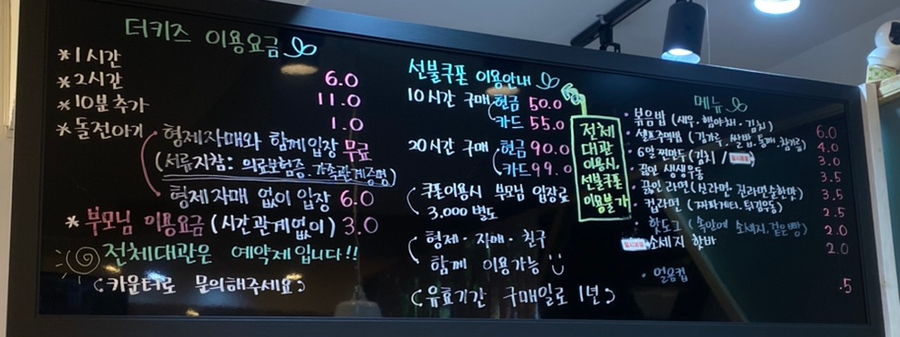 더키즈 이용요금
*1시간 6.0
*2시간 11.0
*10분추가 1.0
*돌전아기
형제자매와 함께입장 무료
(서류지참: 의료보험증, 가족관계증명)
형제자매 없이 입장 6.0
*부모님 이용요금 (시간관계없이) 3.0
전체대관은 예약제입니다!!
(카운터로 문의해주세요)
선불쿠폰 이용안내
10시간 구매 현금 50.0
카드 55.0
20시간 구매 현금 90.0
카드 99.0
쿠폰이용시 부모님 입장료
3,000 별도
형제·자매·친구
함께 이용가능
(유효기간 구매일로 1년)
전체
대관
이용시,
선불쿠폰
이용불가
메뉴
·볶음밥 (새우·햄야채·김치) 6.0
·셀프주먹밥 (김가루, 쌀밥, 참기름) 4.0
찐만두 (김치 / 3.0
·끓인 생생우동 3.5
·끓인 라면 (진라면순한맛) 3.5
·컵라면 (짜파게티, 튀김우동) 2.5
·핫도그 (속안에 소세지, 겉은빵) 2.0
소세지 핫바 2.0
·얼음컵 .5